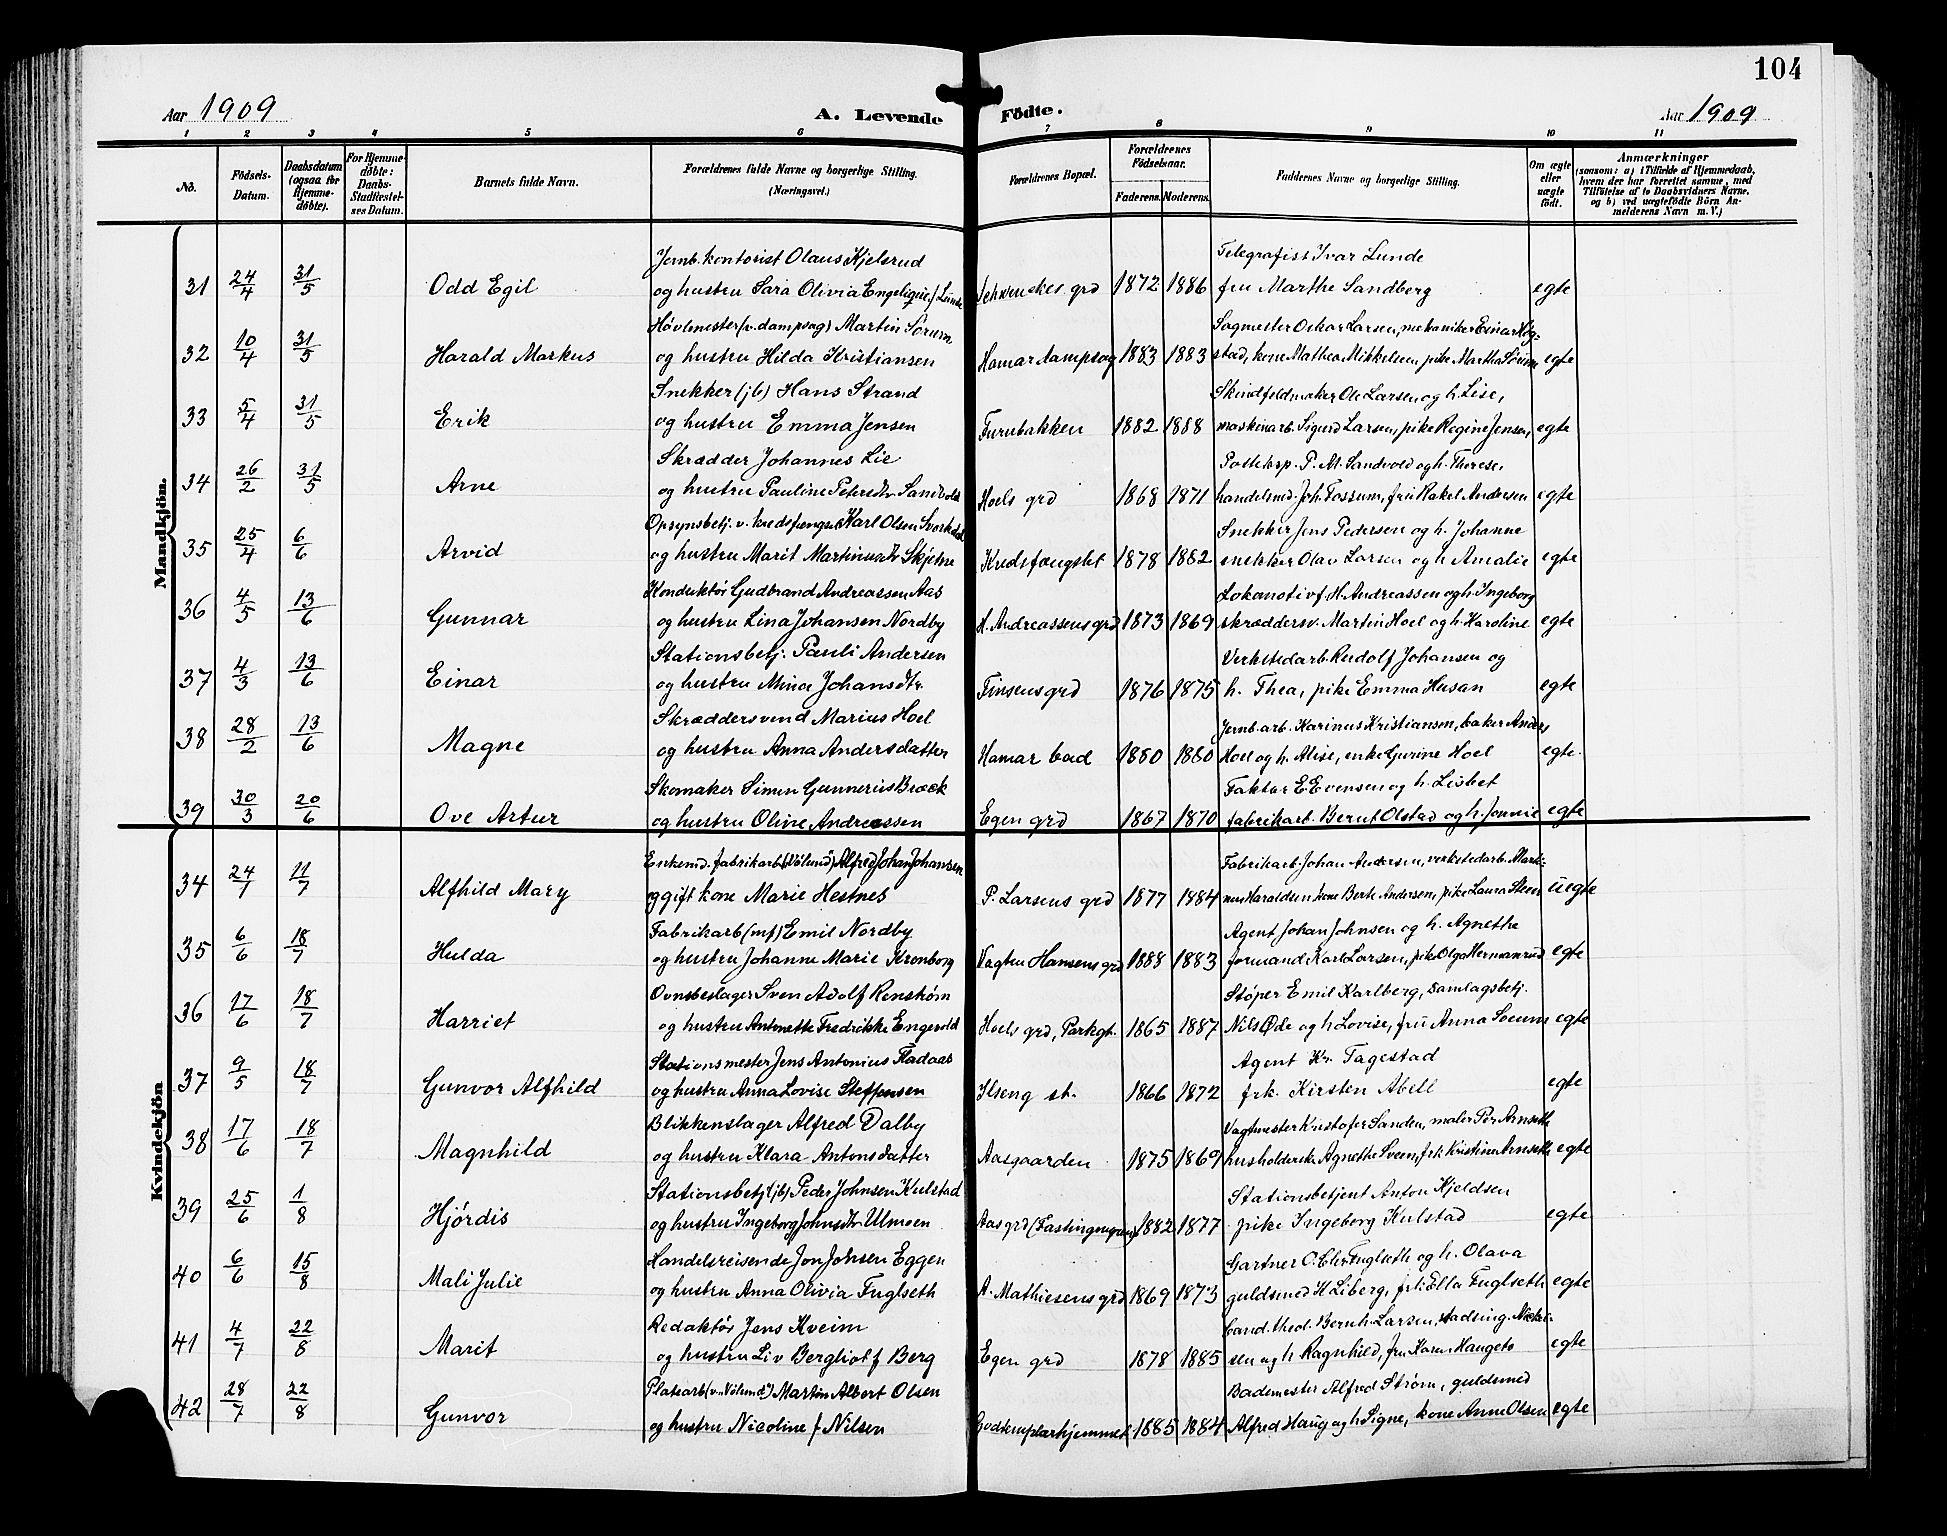 104
Aar 1909
A. Levende Födte.
Aar 1909
1 2 3 4 5 6 7 8 9 10 11
No.
Födsels-Datum.
Daabsdatum (ogsaa for Hjemme-døbte).
For Hjemme-døbte: Daabs-Stadfæstel-ses Datum.
Barnets fulde Navn.
Forældrenes fulde Navne og borgerlige Stilling. (Næringsvei.)
Forældrenes Bopæl.
Forældrenes Födselsaar.
Faderens. Moderens.
Faddernes Navne og borgerlige Stilling.
Om ægte eller uægte født.
Anmærkninger
(saasom: a) i Tilfælde af Hjemmedaab, hvem der har forrettet samme, med Tilføielse af to Daabsvidners Navne, og b) ved uægtefødte Börn An-melderens Navn m. V.)
Mandkjön.
Jernb.kontorist Olaus Kjelsrud Telegrafist Ivar Lunde
31 24/4 31/5 Odd Egil og hustru Sara Olivia Engelique f. Lunde Schwenckes grd 1872 1886 fru Marthe Sandberg egte
Høvlmester (v. dampsag) Martin Sørum Sagmester Oskar Larsen, mekaniker Einar Høg-
32 10/4 31/5 Harald Markus og hustru Hilda Kristiansen Hamar dampsag 1883 1883 stad, kone Mathea Mikkelsen, pike Martha Sørum egte
Snekker (jb) Hans Strand Skindfeldmaker Ole Larsen og h. Lise,
33 5/4 31/5 Erik og hustru Emma Jensen Furubakken 1882 1888 maskinarb. Sigurd Larsen, pike Regine Jensen, egte
Skrædder Johannes Lie Posteksp. P. M. Sandvold og h. Therese,
34 26/2 31/5 Arne og hustru Pauline Petersdtr Sandvold Hoels grd 1868 1871 handelsmd. Joh. Fossum, frk Rakel Andresen egte
Opsynsbetj. v. kredsfængsel Karl Olsen Svorkdal Snekker Jens Pedersen og h. Johanne
35 25/4 6/6 Arvid og hustru Marit Martinusdtr Skjetne Kredsfængslet 1878 1882 snekker Olav Larsen og h Amalie egte
Konduktør Gudbrand Andreassen Aas Lokomotivf. H. Andreassen og h. Ingeborg
36 4/5 13/6 Gunnar og hustru Lina Johansen Nordby H. Andreassens grd 1873 1869 skræddersv. Martin Hoel og h. Karoline egte
Stationsbetj. Pauli Andersen Verkstedarb. Rudolf Johansen og
37 4/3 13/6 Einar og hustru Mina Johansdtr. Finsens grd 1876 1875 h. Thea, pike Emma Husan egte
Skræddersvend Marius Hoel Jernb.arb. Karinus Kristiansen, baker Anders
38 28/2 13/6 Magne og hustru Anna Andersdatter Hamar bad 1880 1880 Hoel og h. Alise, enke Gurine Hoel egte.
Skomaker Simen Gunnerius Bræck Faktor E Evensen og h. Lisbet
39 30/3 20/6 Ove Artur og hustru Oline Andreassen Egen grd 1867 1870 fabrikarb. Bernt Olstad og h. Jonnie egte
Kvindekjön
Enkemd. fabrikarb. ("Vølund") Alfred Johan Johansen Fabrikarb. Johan Andersen, verkstedarb. Mark-
34 24/1 11/7 Alfhild Mary og gift kone Marie Hestnes P. Larsens grd 1877 1884 nus Haraldsen kone Berte Andersen, pike Laura Steen uegte
Fabrikarb (mf) Emil Nordby Agent Johan Johnsen og h. Agnethe
35 6/6 18/7 Hulda og hustru Johanne Marie Kronborg Vagtm Hansens grd 1888 1883 formand Karl Larsen, pike Olga Hermanrud egte
Ovnsbeslager Sven Adolf Renström Støper Emil Karlberg, samlagsbetj.
36 17/6 18/7 Harriet og hustru Antonette Fredrikke Engevold Hoels grd, Parkgt. 1865 1887 Nils Øde og h Lovise, fru Anna Soeum egte
Stationsmester Jens Antonius Fladaas Agent Kr. Fagestad
37 9/5 18/7 Gunvor Alfhild og hustru Anna Lovise Steffensen Ilseng st. 1866 1872 frk. Kirsten Abell egte
Blikkenslager Alfred Dalby Vagtmester Kristofer Sanden, maler Per Arnseth
38 17/6 18/7 Magnhild og hustru Klara Antonsdatter Aasgaarden 1875 1869 husholderske Agnethe Sveen, frk Kristine Arnseth egte
Stationsbetj (jb) Peder Johnsen Kulstad Stationsbetjent Anton Kjeldsen
39 25/6 1/8 Hjørdis og hustru Ingeborg Johnsdtr Ulmoen Aas grd 1882 1877 pike Ingeborg Kulstad egte
Handelsreisende Jon Johnsen Eggen Gartner O. Chr Fuglseth og h. Olava
40 6/6 15/8 Mali Julie og hustru Anna Olivia Fuglseth A. Mathiesens grd 1869 1873 guldsmed H Liberg, frk Ella Fuglseth egte
Redaktør Jens Kveim Cand. theol. Bernh. Larsen, stadsing. Nickel-
41 4/7 22/8 Marit og hustru Liv Bergliot f Berg Egen grd 1878 1885 sen og h Ragnhild, fru Karen Haugeto egte
Platearb (v. "Vølund") Martin Albert Olsen Bademester Alfred Strøm, guldsmed
42 28/7 22/8 Gunvor og hustru Nicoline f. Nilsen Godtemplarhjemmet 1885 1884 Alfred Haug og h Signe, kone Anne Olsen egte